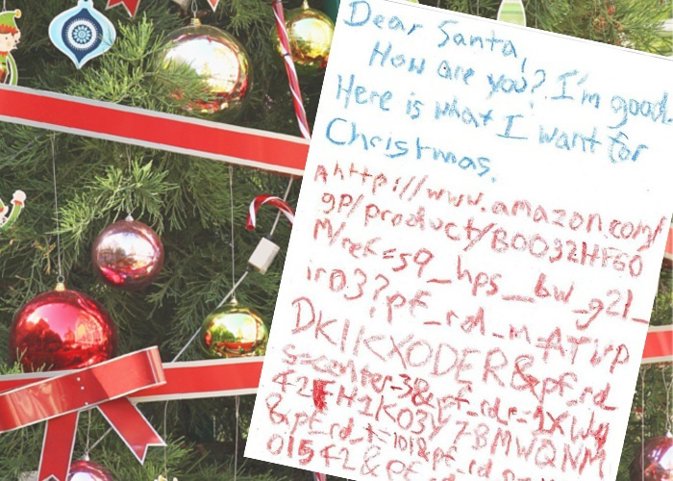 Dear Santa,
How are you? I'm good.
Here is what I want for
Christmas.
http://www.amazon.com/
gp/product/B0032HF60
M/ref=s9_hps_bw_g21_
ir03?pf_rd_m=ATVP
DKIKX0DER&pf_rd_
s=center-3&pf_rd_r=1XWY
42FH1K03Y78MWQNM
&pf_rd_t=101&pf_rd_
01542&pf_rd